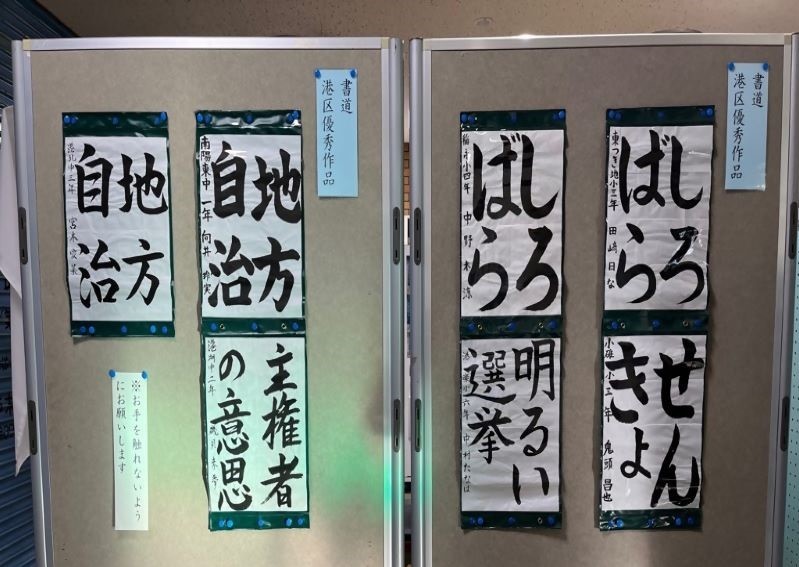 書道
港区優秀作品
しろ
ばら
東つき地小三年 田嶋日な
せん
きょ
小碓小三年 鬼頭昌也
しろ
ばら
稲永小四年 中野
明るい
選挙
港楽小六年 中村たなは
書道
港区優秀作品
地方
自治
南陽東中一年 向井
主権者
の意思
中二年
地方
自治
港北中三年 宮木
※お手を触れないよう
にお願いします